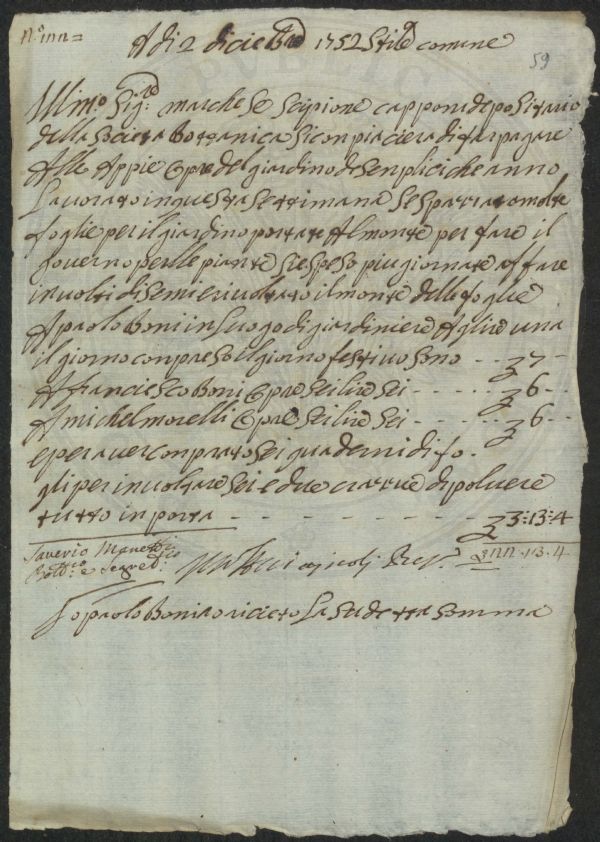 A di 2 diciebre 1752 Stile comune
59
Ill.mo Sig.re marchese Scipione capponi depositario
della Società Bottanica Si conpiaciera di far pagare
Alle Appie Opre del giardino de Senplici che anno
Lavorato in questa Settimana Se Sparrato molte
foglie per il giardino portate Al monte per fare il
governo per lle piante Sie Speso piu giornate A ffare
involti di Semi e rivoltato il monte delle foglie
A paolo Boni in Luogo di giardiniere A glire una
il giorno conpreso il giorno festivo Sono - - 7 -
A Franciesco Boni Opre Sei lire Sei - - - - - 6 - -
A michel morelli Opre Sei lire Sei - - - - - 6 - -
e per aver conprato Sei quaderni di fo-
gli per involtare Sei e due crazzie di polvere
tutto in porta - - - - - - - - 3:13:4
Saverio Manetti
Bott.co e Segret.rio
22.13.4
Io paolo Boni o ricieuto La Sudetta Somma